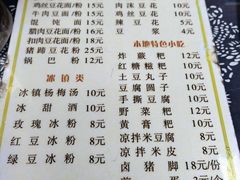 鸡丝豆花面/粉 15元
牛肉豆面/粉 15元
馄饨面/粉 15元
腊肉豆花面/粉 18元
猪蹄豆花面/粉 25元
锅巴粉 12元
冰镇类
冰镇杨梅汤 10元
冰甜酒 10元
玫瑰冰粉 8元
红豆冰粉 8元
绿豆冰粉 8元
肉沫豆花 10元
鸡丝豆花 10元
辣豆花 10元
豆浆 5元
本地特色小吃
炸蕨粑 12元
红糖糍粑 12元
土豆丸子 10元
豆腐圆子 10元
手撕豆腐 10元
野菜粑 12元
黄膏粑 10元
凉拌米豆腐 8元
凉拌米皮 8元
卤猪脚 18元/份
元/个